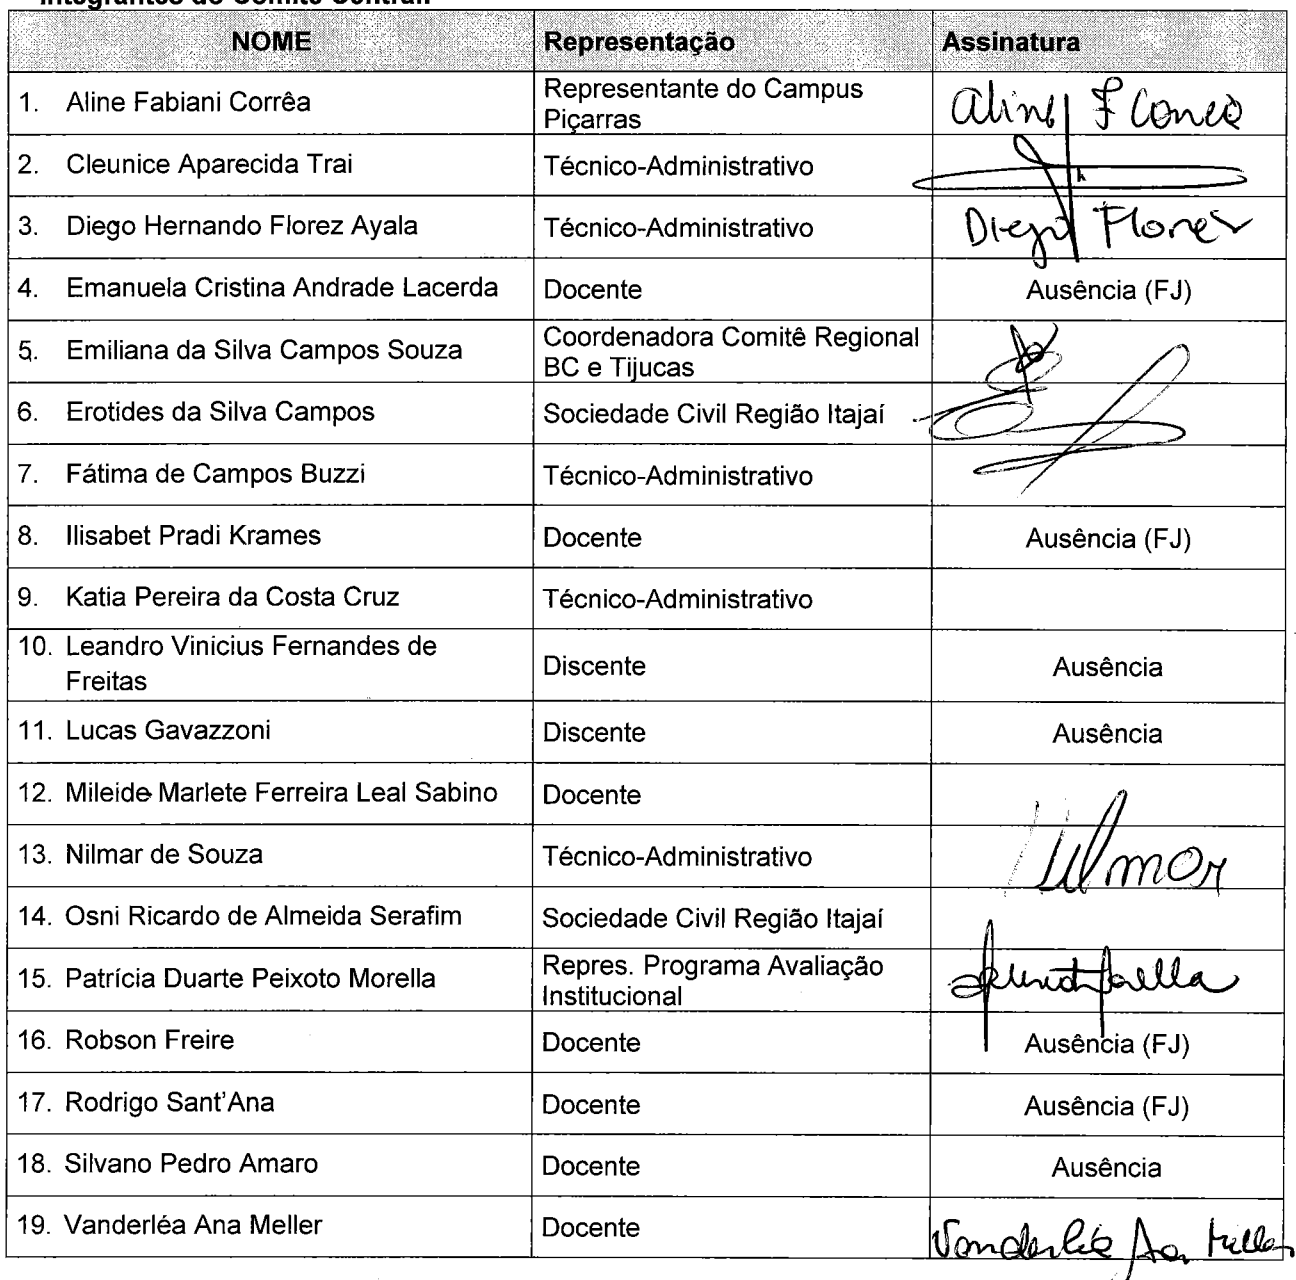 Integrantes do Comitê Central:
NOME Representação Assinatura
1. Aline Fabiani Corrêa Representante do Campus Piçarras Aline F Correa
2. Cleunice Aparecida Trai Técnico-Administrativo
3. Diego Hernando Florez Ayala Técnico-Administrativo Diego Florez
4. Emanuela Cristina Andrade Lacerda Docente Ausência (FJ)
5. Emiliana da Silva Campos Souza Coordenadora Comitê Regional BC e Tijucas
6. Erotides da Silva Campos Sociedade Civil Região Itajaí
7. Fátima de Campos Buzzi Técnico-Administrativo
8. Ilisabet Pradi Krames Docente Ausência (FJ)
9. Katia Pereira da Costa Cruz Técnico-Administrativo
10. Leandro Vinicius Fernandes de Freitas Discente Ausência
11. Lucas Gavazzoni Discente Ausência
12. Mileide Marlete Ferreira Leal Sabino Docente
13. Nilmar de Souza Técnico-Administrativo Nilmar
14. Osni Ricardo de Almeida Serafim Sociedade Civil Região Itajaí
15. Patrícia Duarte Peixoto Morella Repres. Programa Avaliação Institucional
16. Robson Freire Docente Ausência (FJ)
17. Rodrigo Sant'Ana Docente Ausência (FJ)
18. Silvano Pedro Amaro Docente Ausência
19. Vanderléa Ana Meller Docente Vanderléa Ana Meller